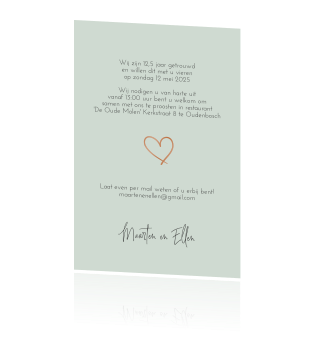 Wij zijn 12,5 jaar getrouwd
en willen dit met u vieren
op zondag 12 mei 2025
Wij nodigen u van harte uit
vanaf 15.00 uur bent u welkom om
samen met ons te proosten in restaurant
'De Oude Molen' Kerkstraat 8 te Oudenbosch
Laat even per mail weten of u erbij bent!
maartenenellen@gmail.com
Maarten en Ellen